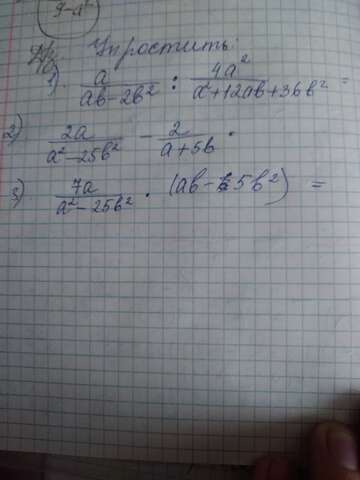 9-a²
Упростить:
1). a/(ab-2b²) : 4a²/(a²+12ab+36b²) =
2) 2a/(a²-25b²) - 2/(a+5b) .
3) 7a/(a²-25b²) · (ab-5b²) =